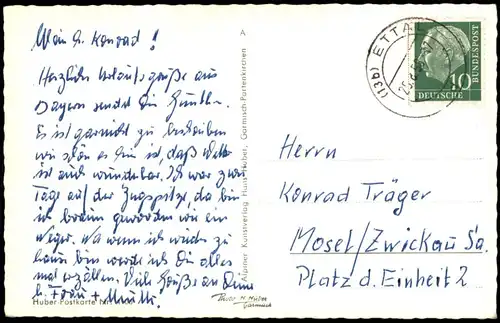 Mein lb. Konrad!
Herzliche Urlaubsgrüße aus
Bayern sendet Dir Günther.
Es ist garnicht zu beschreiben
wie schön es hier ist, daß Wetter
ist auch wunderbar. Ich war zwei
Tage auf der Zugspitze, da bin
ich braun geworden wie ein
Neger. Na wenn ich wieder zu
hause bin werde ich Dir alles
mal erzählen. Viele Grüße an Deine
lb. Frau + Mutti.
Huber-Postkarte Nr.
A
Alpiner Kunstverlag Hans Huber, Garmisch-Partenkirchen
Photo H. Huber
Garmisch
(13b) ETTAL
10
DEUTSCHE
BUNDESPOST
Herrn
Konrad Träger
Mosel/Zwickau Sa.
Platz d. Einheit 2